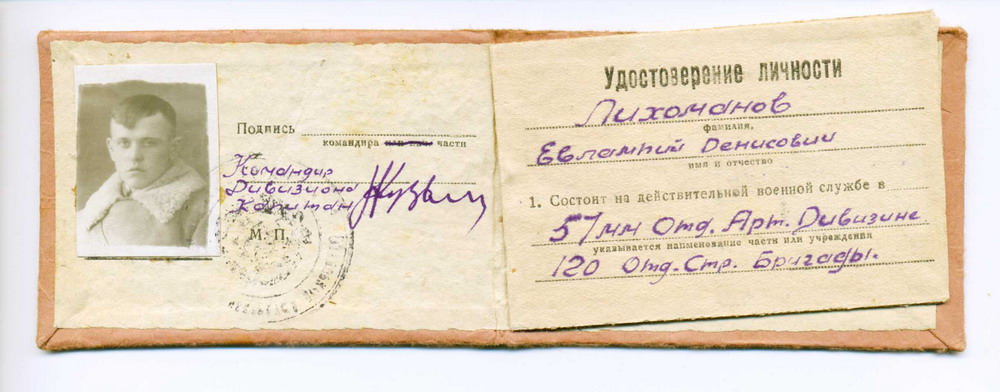 Подпись
командира или нач. части
Командир
Дивизиона
Капитан
М. П.
Удостоверение личности
Лихоманов
фамилия,
Евлампий Денисович
имя и отчество
1. Состоит на действительной военной службе в
57 мм Отд. Арт. Дивизине
указывается наименование части или учреждения
120 Отд. Стр. Бригады.